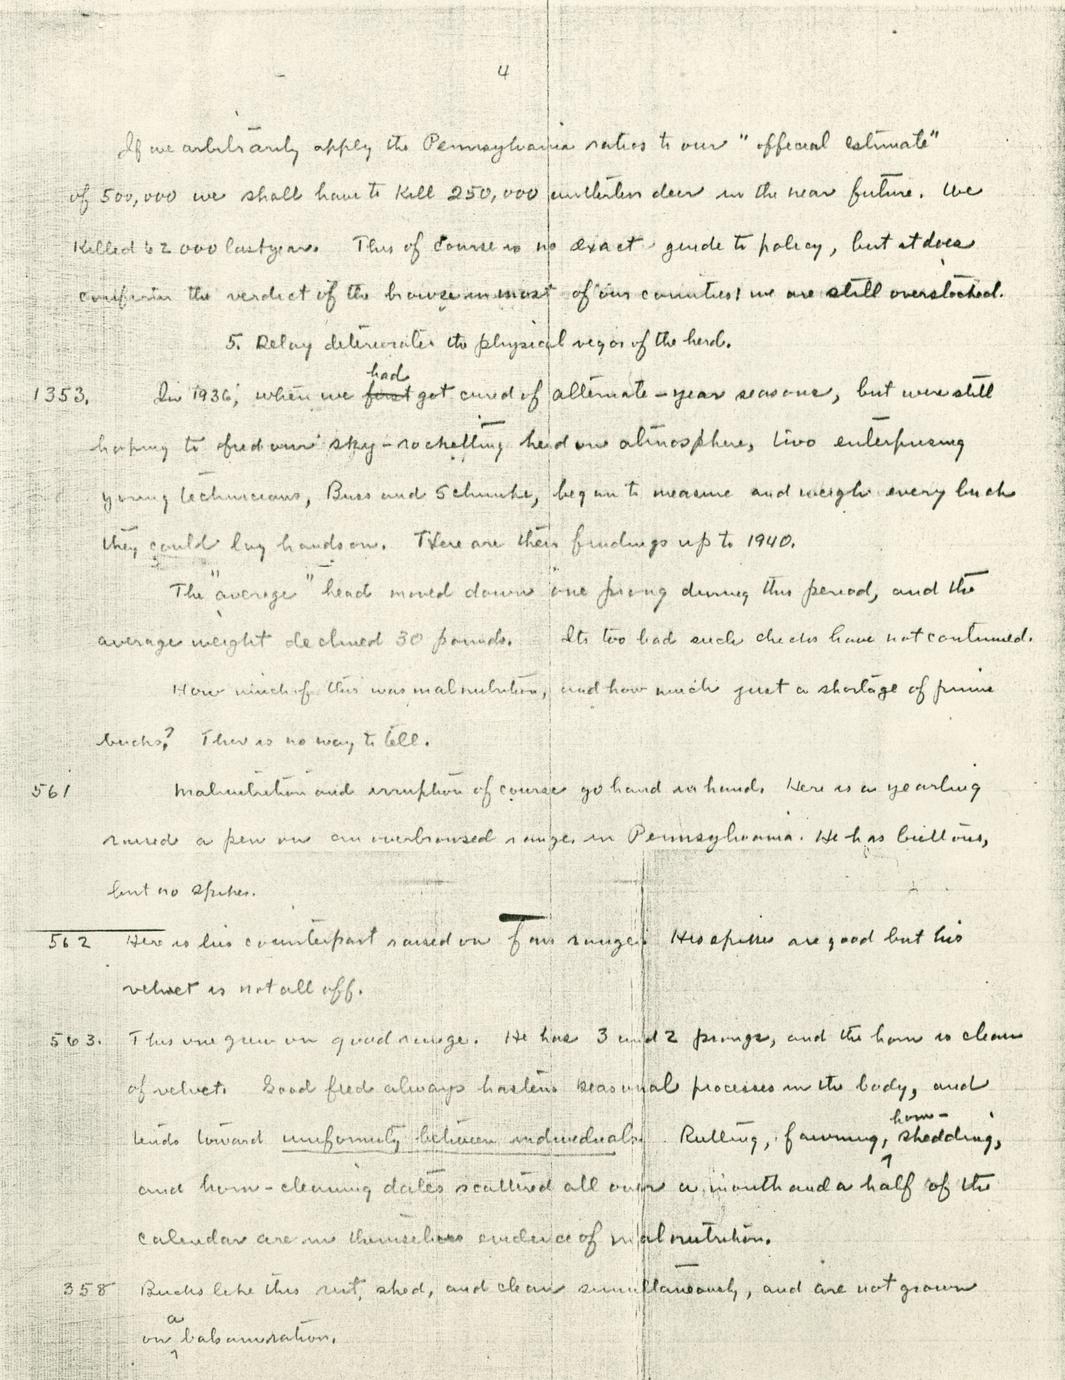 4
If we arbitrarily apply the Pennsylvania ratios to our "official estimate"
of 500,000 we shall have to kill 250,000 antlerless deer in the near future. We
killed 62 000 last year. This of course is no exact guide to policy, but it does
confirm the verdict of the browse in most of our counties: we are still overstocked.
5. Delay deteriorates the physical vigor of the herd.
1353. In 1936, when we first had got cured of alternate-year seasons, but were still
hoping to feed our sky-rocketting herd on atmosphere, two enterprising
young technicians, Buss and Schunke, began to measure and weigh every buck
they could lay hands on. There are their findings up to 1940.
The "average" head moved down one prong during this period, and the
average weight declined 30 pounds. Its too bad such checks have not continued.
How much of this was malnutrition, and how much just a shortage of prime
bucks? There is no way to tell.
561 Malnutrition and irruption of course go hand in hand. Here is a yearling
raised a pen on an overbrowsed range in Pennsylvania. He has buttons,
but no spikes.
562 Here is his counterpart raised on fair range. His spikes are good but his
velvet is not all off.
563. This one grew on good range. He has 3 and 2 prongs, and the horn is clean
of velvet. Good feed always hastens seasonal processes in the body, and
tends toward uniformity between individuals. Rutting, fawning, horn-shedding,
and horn-cleaning dates scattered all over a month and a half of the
calendar are in themselves evidence of malnutrition.
358 Bucks like this rut, shed, and clean simultaneously, and are not grown
on a balsam ration.